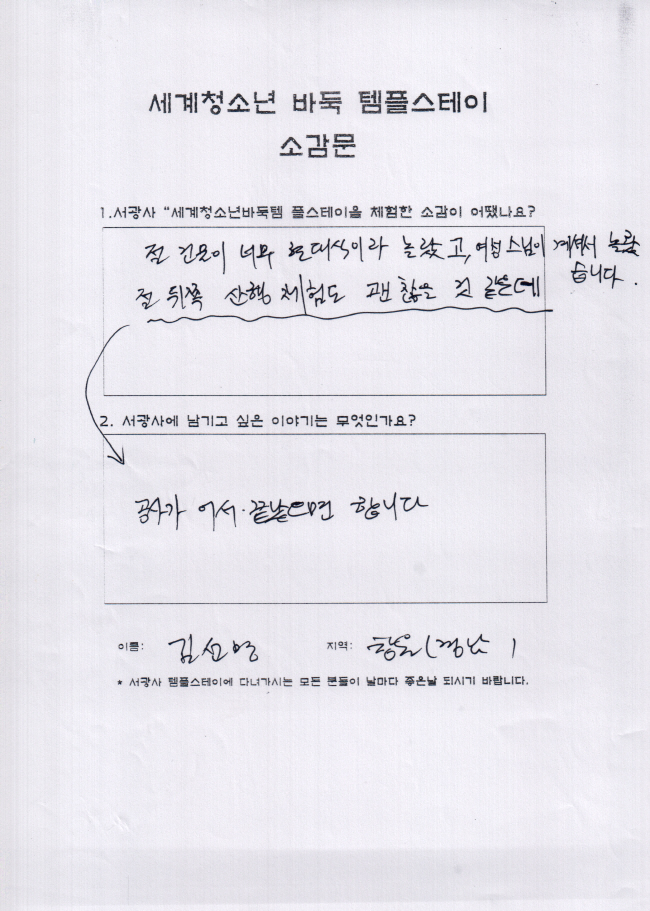 세계청소년 바둑 템플스테이
소감문
1.서광사 “세계청소년바둑템 플스테이을 체험한 소감이 어땠나요?
절 건물이 너무 현대식이라 놀랐고, 여럽 스님이 계셔서 놀랐
습니다.
절 뒤쪽 산행 체험도 괜찮을 것 같은데
2. 서광사에 남기고 싶은 이야기는 무엇인가요?
공사가 어서 끝났으면 합니다
이름: 김선영 지역: 함안(경남)
* 서광사 템플스테이에 다녀가시는 모든 분들이 날마다 좋은날 되시기 바랍니다.